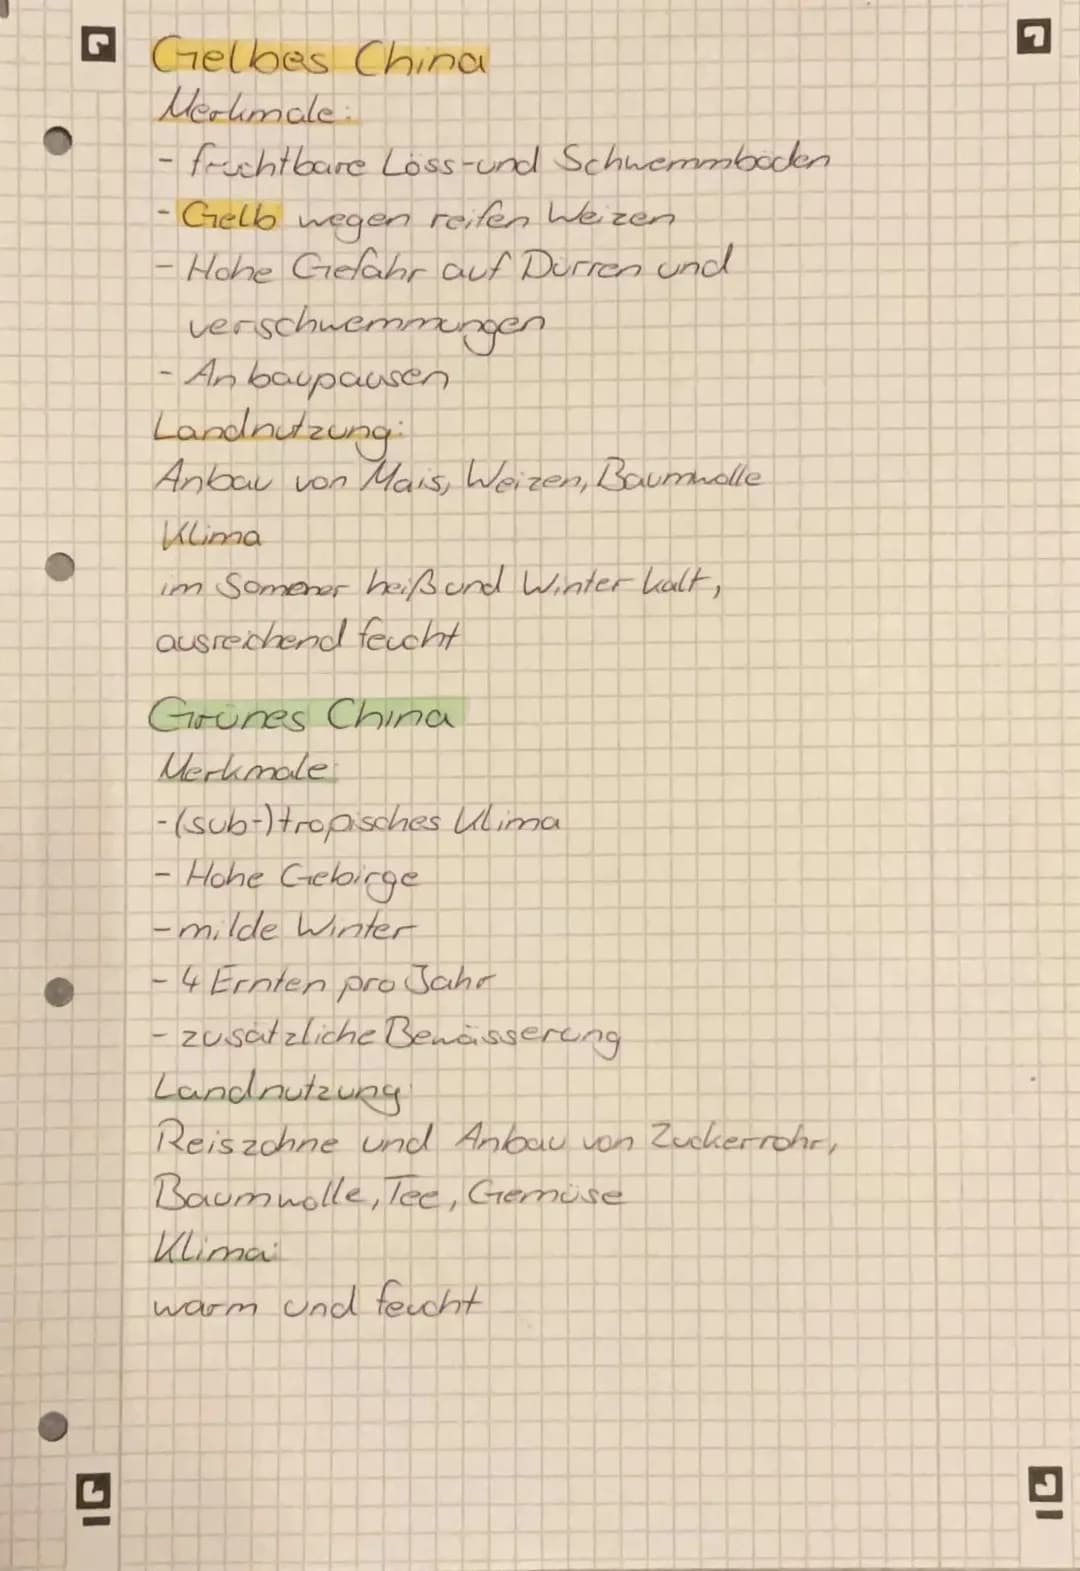 Gelbes China
Merkmale:
- fruchtbare Löss-und Schwemmböden
- Gelb wegen reifen Weizen
- Hohe Gefahr auf Dürren und
verschwemmungen
- Anbaupausen
Landnutzung:
Anbau von Mais, Weizen, Baumwolle
Klima
im Sommer heiß und Winter kalt,
ausreichend feucht
Grünes China
Merkmale:
- (sub-)tropisches Klima
- Hohe Gebirge
- milde Winter
- 4 Ernten pro Jahr
- zusätzliche Bewässerung
Landnutzung:
Reiszohne und Anbau von Zuckerrohr,
Baumwolle, Tee, Gemüse
Klima:
warm und feucht